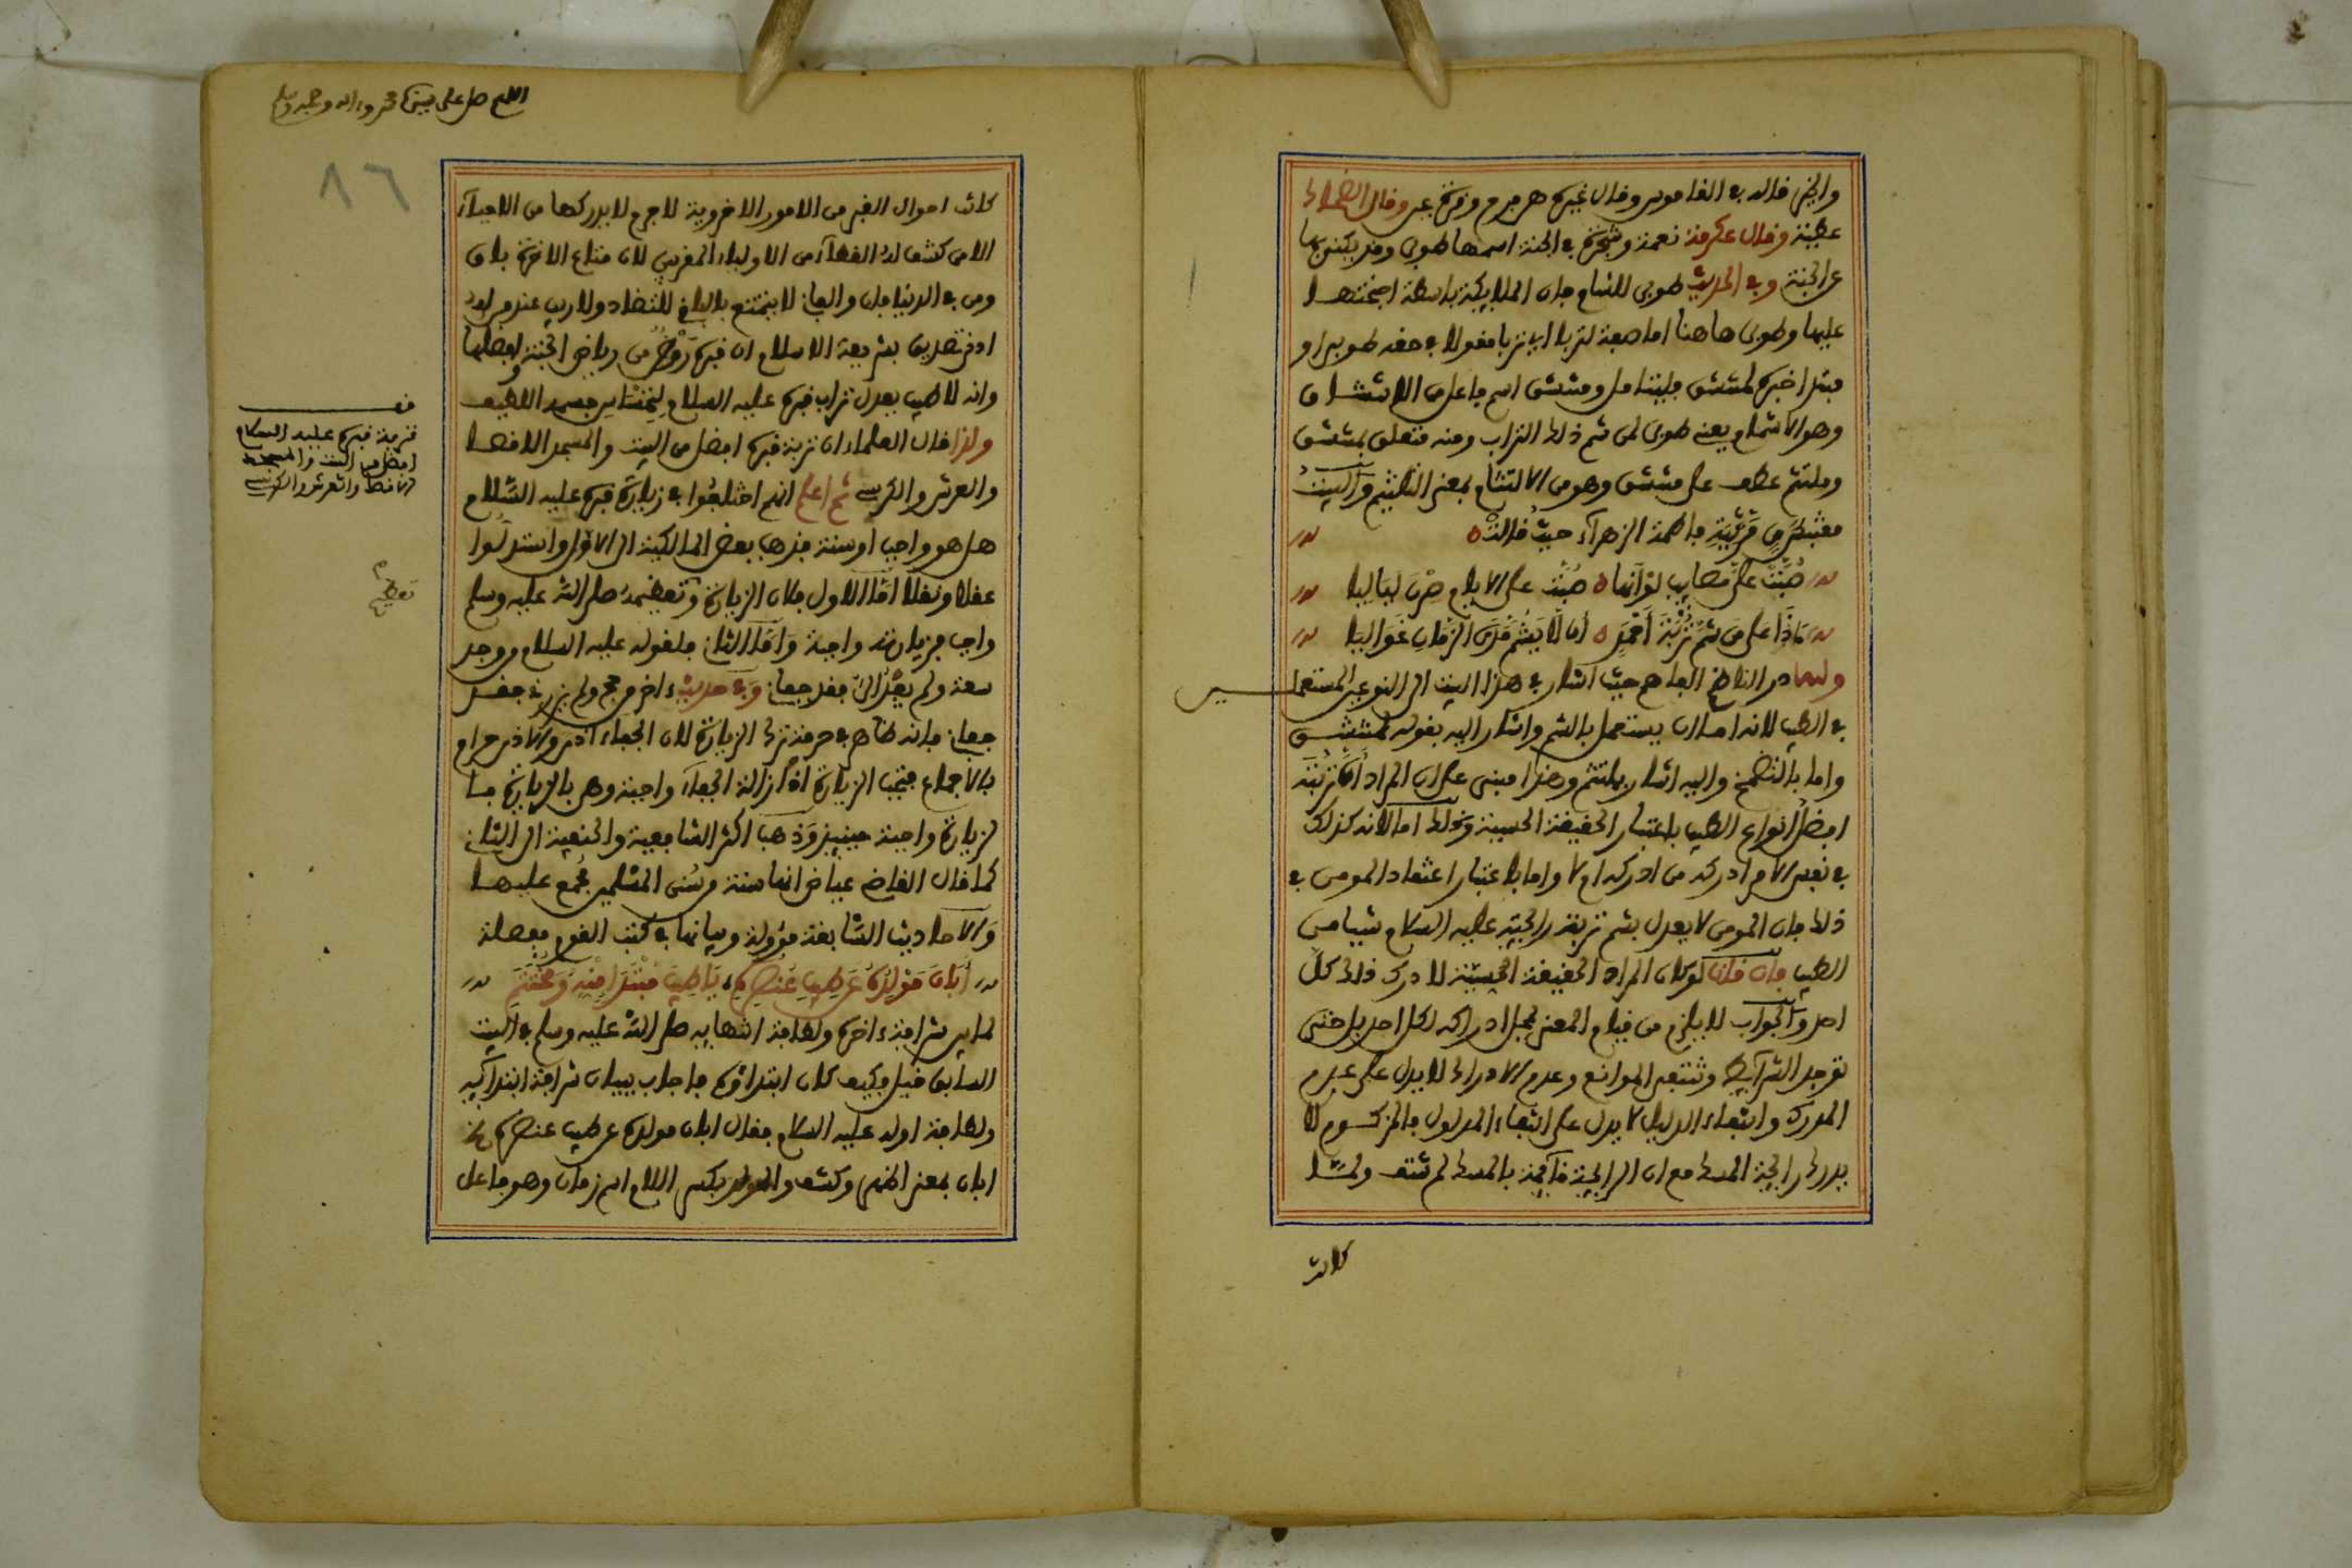 والخير قاله في القاموس وقال غيره هي فرح وقرة عين وقال الضحاك
غبطة وقال عكرمة نعمة وشجرة في الجنة اسمها طوبى وقد يكنى بها
عن الجنة وفي الحديث طوبى للشام فان الملايكة باسطة اجنحتها
عليها وطوبى هاهنا اما صفة لتربا اي تربا مقولا في حقه طوبى او
مبتدا خبره لمنتشق فليتامل ومنتشق اسم فاعل من الانتشاق
وهو الاشمام يعني طوبى لمن شم ذلك التراب ومنه متعلق بمنتشق
وملتثم عطف على منتشق وهو من الالتثام بمعنى التلثيم والبيت
مقتبس من مرثية فاطمة الزهراء حيث قالت
صُبَّت عليّ مصايب لو انها صُبَّت على الايام صرن لياليا
ماذا على من شم تربة احمد ان لا يشم مدى الزمان غواليا
ولله در الناظم الفاهم حيث اشار في هذا البيت الى النوعين المستعملين
في الطيب لانه اما ان يستعمل بالشم واشار اليه بقوله لمنتشق
واما بالتضمخ واليه اشار بملتثم وهذا مبني على ان المراد ان تربته
افضل انواع الطيب باعتبار الحقيقة الحسية وذلك اما لانه كذلك
في نفس الامر ادركه من ادركه ام لا واما باعتبار اعتقاد المومن في
ذلك فان المومن لا يعدل بشم تربة رايحته عليه السلام شيا من
الطيب فان قلت لو كان المراد الحقيقة الحسية لادرك ذلك كل
احد والجواب لا يلزم من قيام المعنى بمحل ادراكه لكل احد بل حتى
توجد الشرايط وتنتفي الموانع وعدم الادراك لا يدل على عدم
المدرك وانتفاء الدليل لا يدل على انتفاء المدلول فالمزكوم لا
يدرك رايحة المسك مع ان الرايحة قايمة بالمسك لم تنتف ولما
كانت
اللهم صل على نبينا محمد واله وصحبه وسلم
٨٦
كانت احوال القبر من الامور الاخروية لا جرم لا يدركها من الاحياء
الا من كشف له الغطاء من الاولياء المقربين لان متاع الاخرة باق
ومن في الدنيا فان والفاني لا يتمتع بالباقي للتضاد ولا ريب عند من له
ادنى تصديق بشريعة الاسلام ان قبره روض من رياض الجنة افضلها
وانه لا طيب يعدل تراب قبره عليه السلام لجسده اللطيف
ولذا قال العلماء ان تربة قبره افضل من البيت والمسجد الاقصا
والعرش والكرسي ثم اعلم انهم اختلفوا في زيارة قبره عليه السلام
هل هو واجب او سنة فذهب بعض المالكية الى الاول واستدلوا
عقلا ونقلا اما الاول فلان الزيارة وتعظيمه صلى الله عليه وسلم
واجب فزيارته واجبة واما الثاني فلقوله عليه السلام من وجد
سعة ولم يفد اليّ فقد جفاني وفي حديث ءاخر من حج ولم يزرني فقد
جفاني فانه ظاهر في حرمة ترك الزيارة لان الجفاء اذى والاذى حرام
بالاجماع فتجب الزيارة اذ ازالة الجفاء واجبة وهي بالزيارة فا
لزيارة واجبة حينيذ وذهب اكثر الشافعية والحنفية الى الثاني
كما قال القاضي عياض انها سنة من سنن المسلمين مجمع عليها
والاحاديث السابقة مؤولة وبيانها في كتب القوم مفصلة
ابان مولده عن طيب عنصره، يا طيب مبتدا منه ومختتم
لما بين شرافة ءاخره ولطافة انتهايه صلى الله عليه وسلم في البيت
السابق قيل وكيف كان ابتداؤه فاجاب ببيان شرافة ابتدايه
ولطافة اوله عليه السلام فقال ابان مولده عن طيب عنصره
ابان بمعنى اظهر وكشف والمولد بكسر اللام اسم زمان وهو فاعل
قف
تربة قبره عليه السلام
افضل من البيت والمسجد
الاقصا والعرش والكرسي
تعظيم